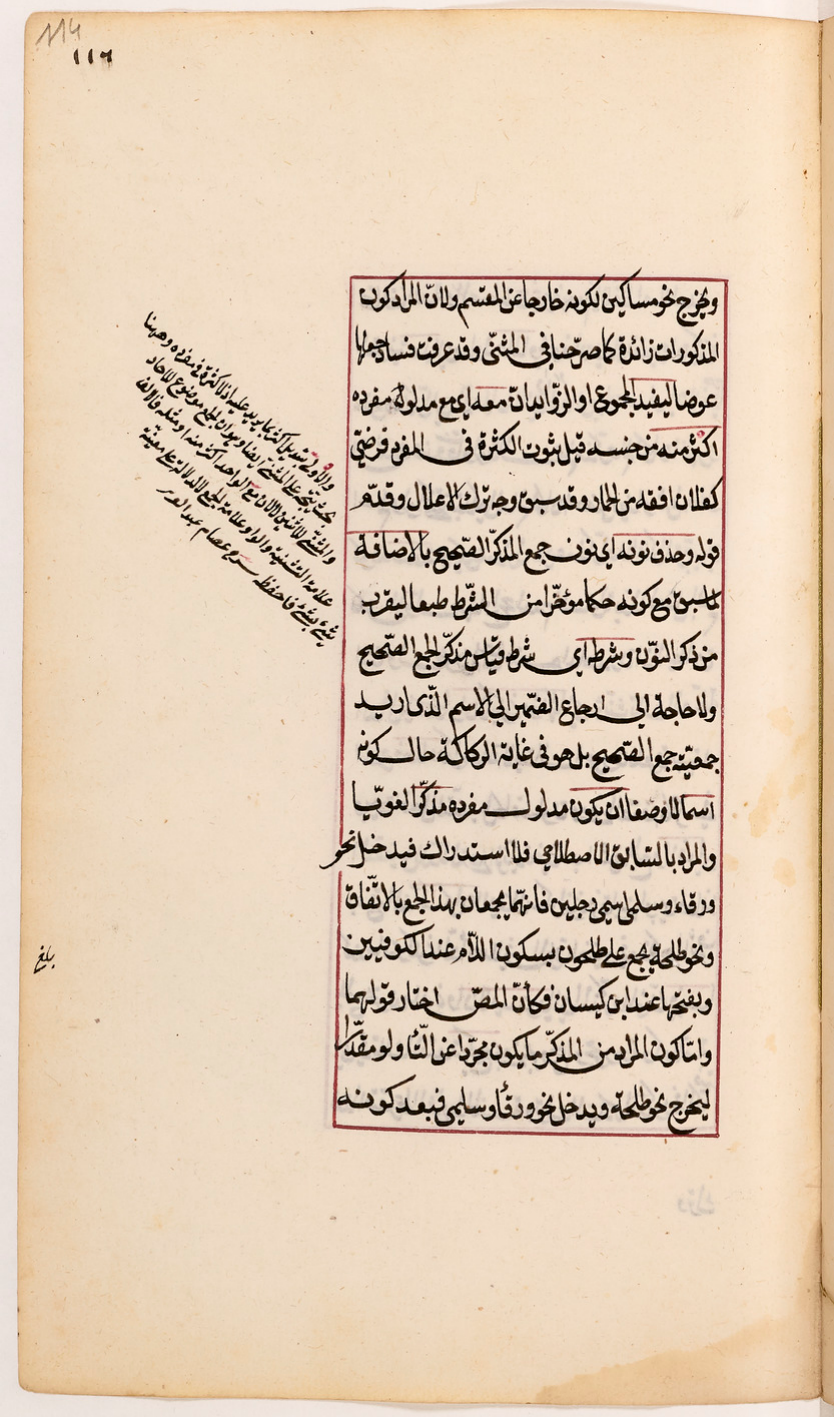 114
١١٦
ويخرج نحو مساكين لكونه خارجا عن المقسم ولان المراد كون
المذكورات زائدة كما صرّحنا فى المثنّى وقد عرفت فساد جعلها
عوضا ليفيد المجموع او الزوايد ان معه اى مع مدلول مفرده
اكثر منه من جنسه قيل ثبوت الكثرة فى المفرد فرضىّ
كفلان افقه من الحمار وقد سبق وجه ترك الاعلال وقدّم
قوله وحذف نونه اى نون جمع المذكّر الصّحيح بالاضافة
لما سبق مع كونه حكما مؤخّرا من الشّرط طبعا ليقرب
من ذكر النّون وشرطه اى شرط قياس مذكّر الجمع الصّحيح
ولا حاجة الى ارجاع الضّمير الى الاسم الّذى اريد
جمعيّته جمع الصّحيح بل هو فى غاية الركاكة حال كونه
اسما لا وصفا ان يكون مدلول مفرده مذكّرا لغويّا
والمراد بالسّابق الاصطلاحى فلا استدراك فيدخل نحو
ورقاء وسلمى اسمى رجلين فانهّما يجمعان بهذا الجمع بالاتّفاق
ونحو طلحة يجمع على طلحون بسكون اللّام عند الكوفيين
وبفتحها عند ابن كيسان فكأنّ المصّ اختار قولهما
وامّا كون المراد من المذكّر ما يكون مجرّدا عن التّا ولو مقدّرا
ليخرج نحو طلحة ويدخل نحو ورقاء وسلمى فبعد كونه
والاولى تبديل اكثر بما يزيد عليه اذ لا كثرة فى مفرده وههنا
بحث يتجه على المثنى ايضا وهو ان الجمع موضوع للاحاد
والمثنى للاثنين لا لان مع الواحد اكثر منه او مثله فالالف
علامة التثنية والواو علامة الجمع لا للدلالة على معيّة
شئ بشئ فاحفظه عصام
بلغ